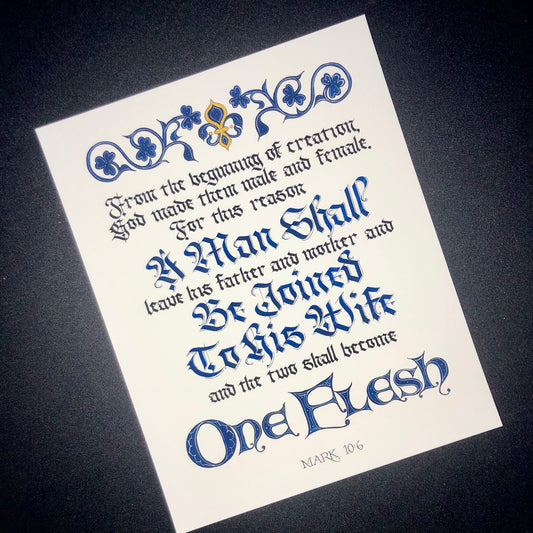 From the beginning of creation,
God made them male and female.
For this reason
A Man Shall
leave his father and mother and
Be Joined
To His Wife
and the two shall become
One Flesh
MARK 10:6